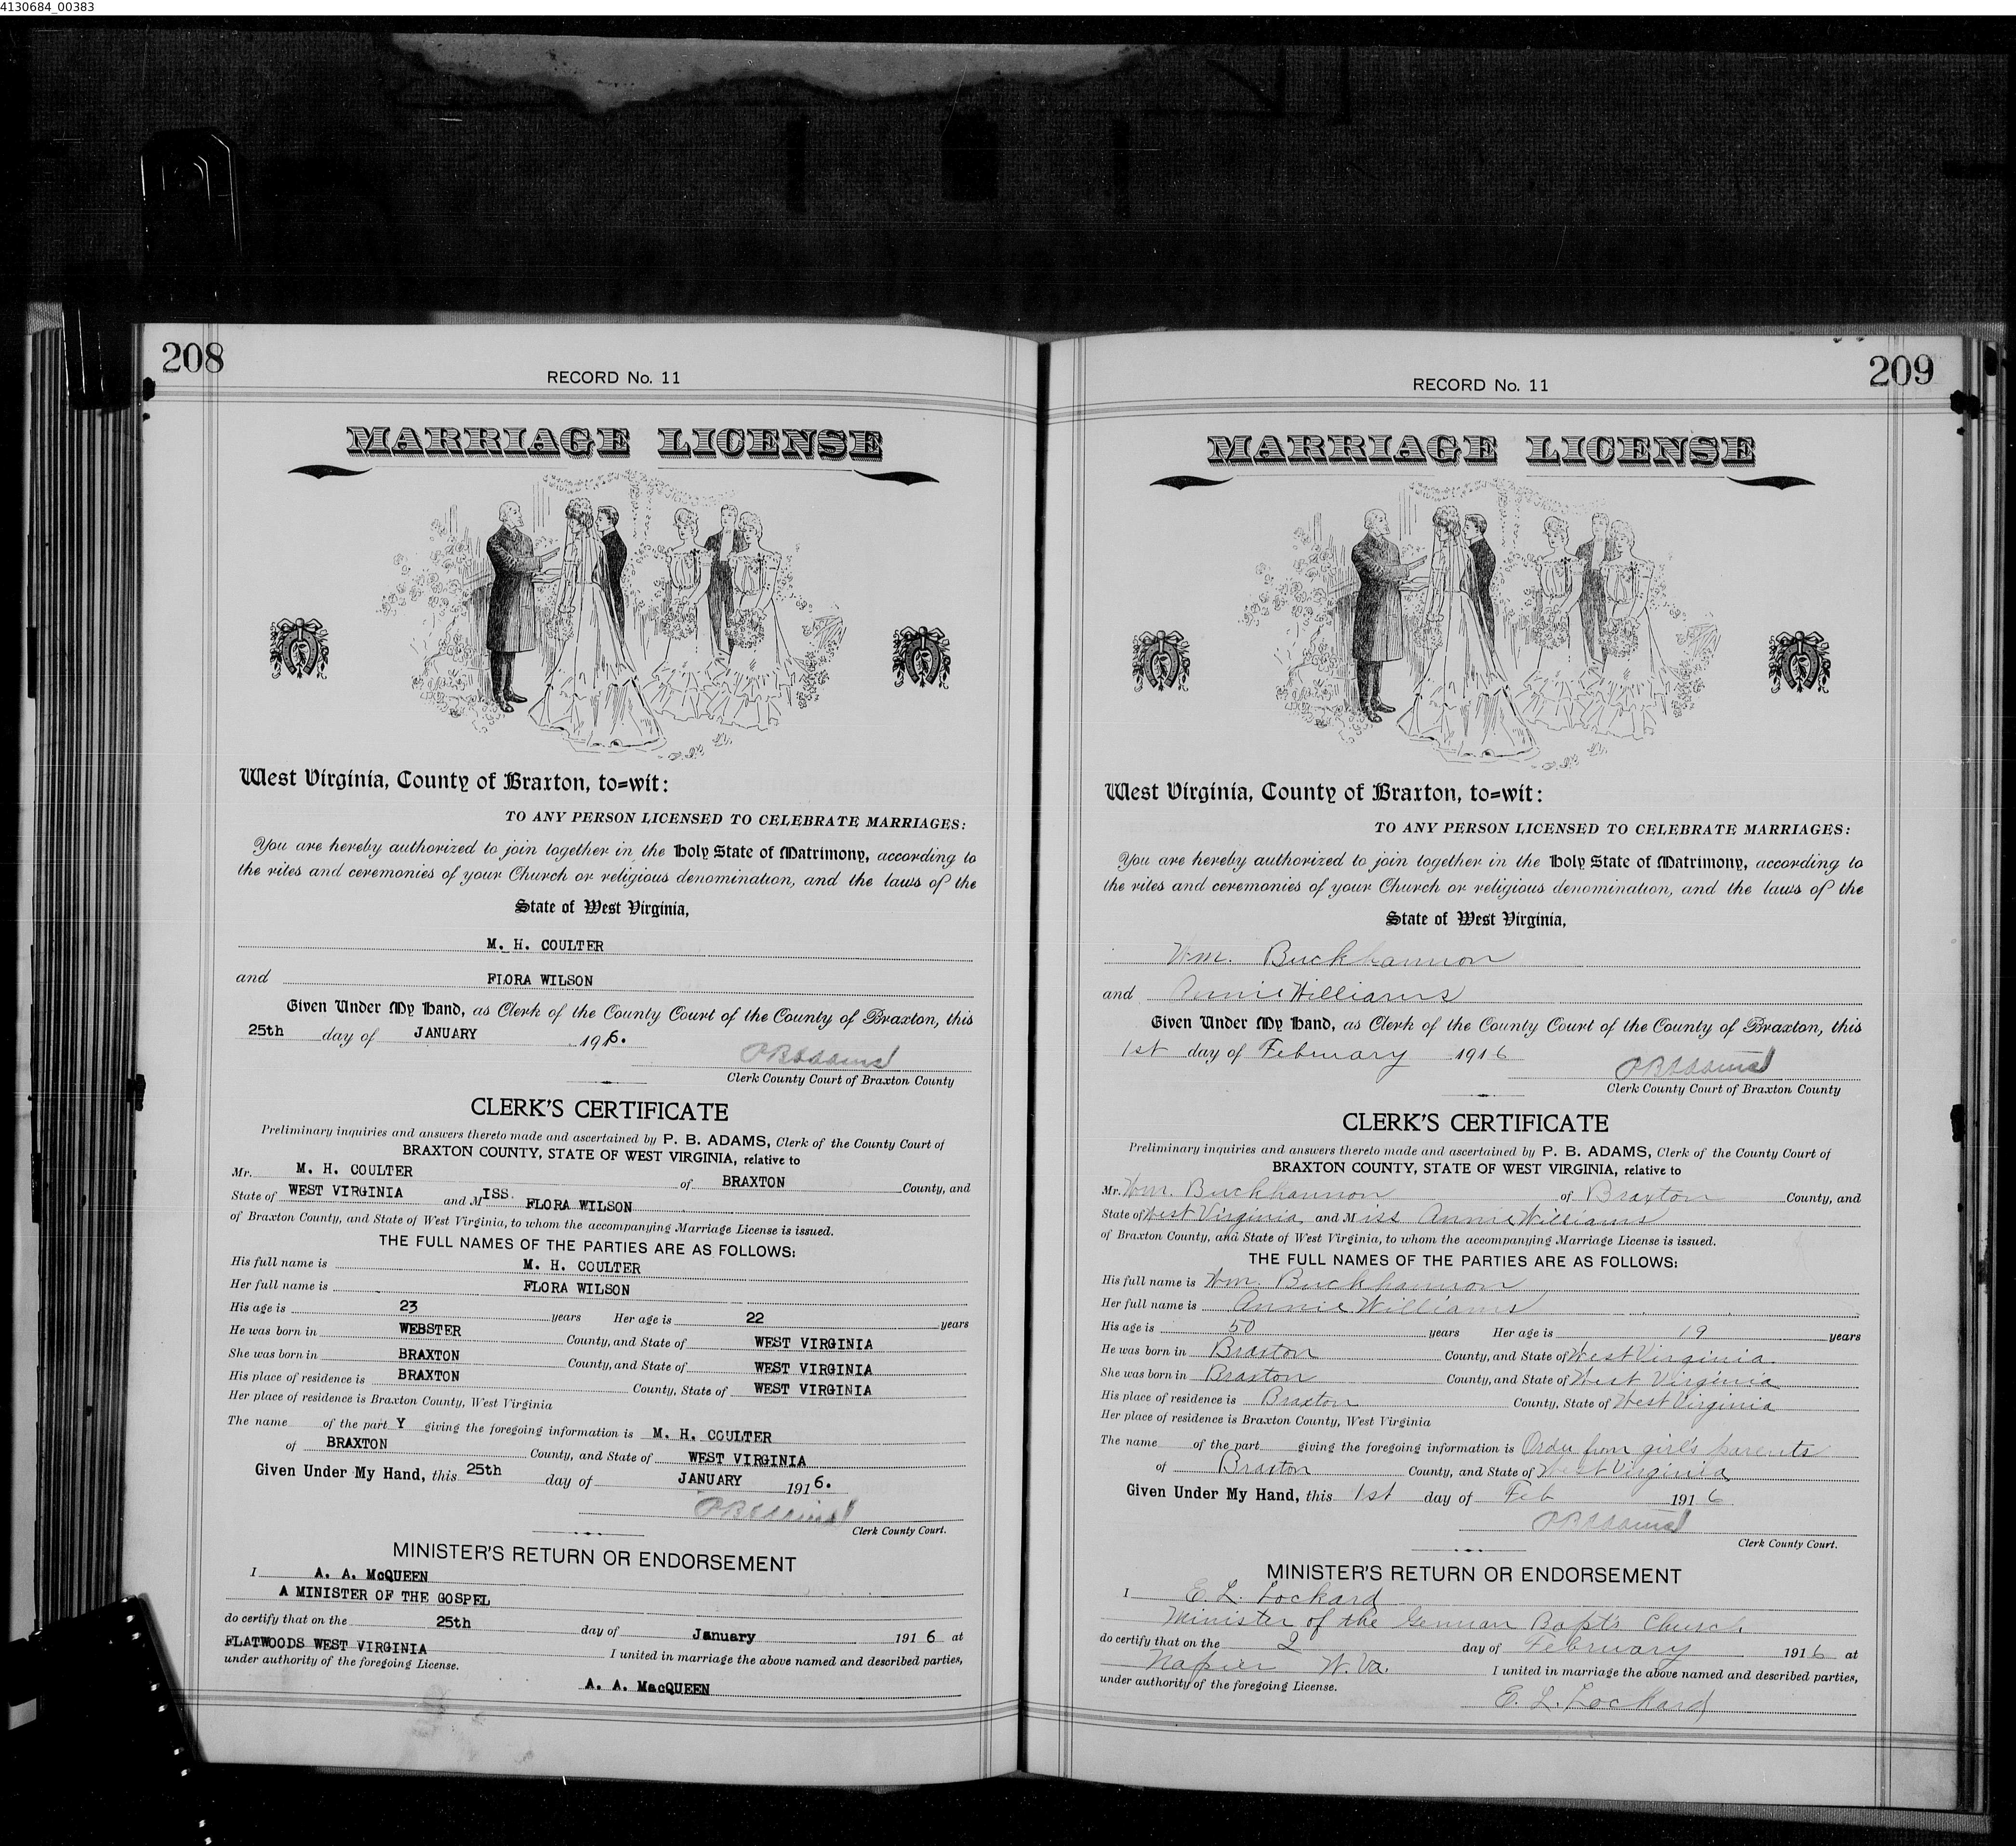 4130684_00383
208
RECORD No. 11
MARRIAGE LICENSE
West Virginia, County of Braxton, to=wit:
TO ANY PERSON LICENSED TO CELEBRATE MARRIAGES:
You are hereby authorized to join together in the Holy State of Matrimony, according to
the rites and ceremonies of your Church or religious denomination, and the laws of the
State of West Virginia,
M. H. COULTER
and FLORA WILSON
Given Under My Hand, as Clerk of the County Court of the County of Braxton, this
25th day of JANUARY 1916.
P B Adams
Clerk County Court of Braxton County
CLERK'S CERTIFICATE
Preliminary inquiries and answers thereto made and ascertained by P. B. ADAMS, Clerk of the County Court of
BRAXTON COUNTY, STATE OF WEST VIRGINIA, relative to
Mr. M. H. COULTER of BRAXTON County, and
State of WEST VIRGINIA and MISS. FLORA WILSON
of Braxton County, and State of West Virginia, to whom the accompanying Marriage License is issued.
THE FULL NAMES OF THE PARTIES ARE AS FOLLOWS:
His full name is M. H. COULTER
Her full name is FLORA WILSON
His age is 23 years Her age is 22 years
He was born in WEBSTER County, and State of WEST VIRGINIA
She was born in BRAXTON County, and State of WEST VIRGINIA
His place of residence is BRAXTON County, State of WEST VIRGINIA
Her place of residence is Braxton County, West Virginia
The name of the part Y giving the foregoing information is M. H. COULTER
of BRAXTON County, and State of WEST VIRGINIA
Given Under My Hand, this 25th day of JANUARY 1916.
P B Adams
Clerk County Court.
MINISTER'S RETURN OR ENDORSEMENT
I A. A. McQUEEN
A MINISTER OF THE GOSPEL
do certify that on the 25th day of January 1916 at
FLATWOODS WEST VIRGINIA I united in marriage the above named and described parties,
under authority of the foregoing License.
A. A. MacQUEEN
209
RECORD No. 11
MARRIAGE LICENSE
West Virginia, County of Braxton, to=wit:
TO ANY PERSON LICENSED TO CELEBRATE MARRIAGES:
You are hereby authorized to join together in the Holy State of Matrimony, according to
the rites and ceremonies of your Church or religious denomination, and the laws of the
State of West Virginia,
Wm. Buckhannon
and Annie Williams
Given Under My Hand, as Clerk of the County Court of the County of Braxton, this
1st day of February 1916
P B Adams
Clerk County Court of Braxton County
CLERK'S CERTIFICATE
Preliminary inquiries and answers thereto made and ascertained by P. B. ADAMS, Clerk of the County Court of
BRAXTON COUNTY, STATE OF WEST VIRGINIA, relative to
Mr. Wm. Buckhannon of Braxton County, and
State of West Virginia and Miss Annie Williams
of Braxton County, and State of West Virginia, to whom the accompanying Marriage License is issued.
THE FULL NAMES OF THE PARTIES ARE AS FOLLOWS:
His full name is Wm. Buckhannon
Her full name is Annie Williams
His age is 50 years Her age is 19 years
He was born in Braxton County, and State of West Virginia.
She was born in Braxton County, and State of West Virginia
His place of residence is Braxton County, State of West Virginia
Her place of residence is Braxton County, West Virginia
The name of the part giving the foregoing information is Order from girl's parents
of Braxton County, and State of West Virginia
Given Under My Hand, this 1st day of Feb 1916
P B Adams
Clerk County Court.
MINISTER'S RETURN OR ENDORSEMENT
I E. L. Lockard
Minister of the German Bapt's Church
do certify that on the 2 day of February 1916 at
Napier W. Va. I united in marriage the above named and described parties,
under authority of the foregoing License.
E. L. Lockard